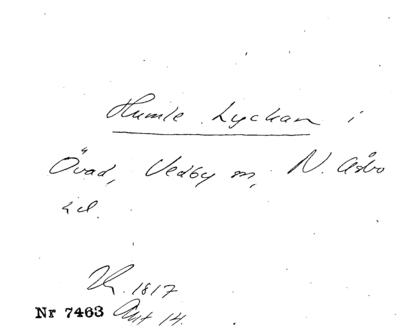 Humle Lyckan i
Övad, Vedby sn, N. Åsbo
hd.
1817
Nr 7463 Akt 14.